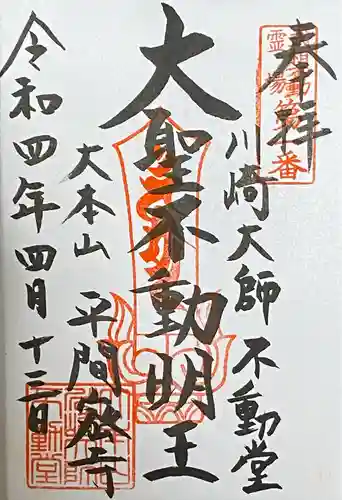 奉拝
川崎大師不動堂
大聖不動明王
大本山 平間寺
令和四年四月十三日
不動堂